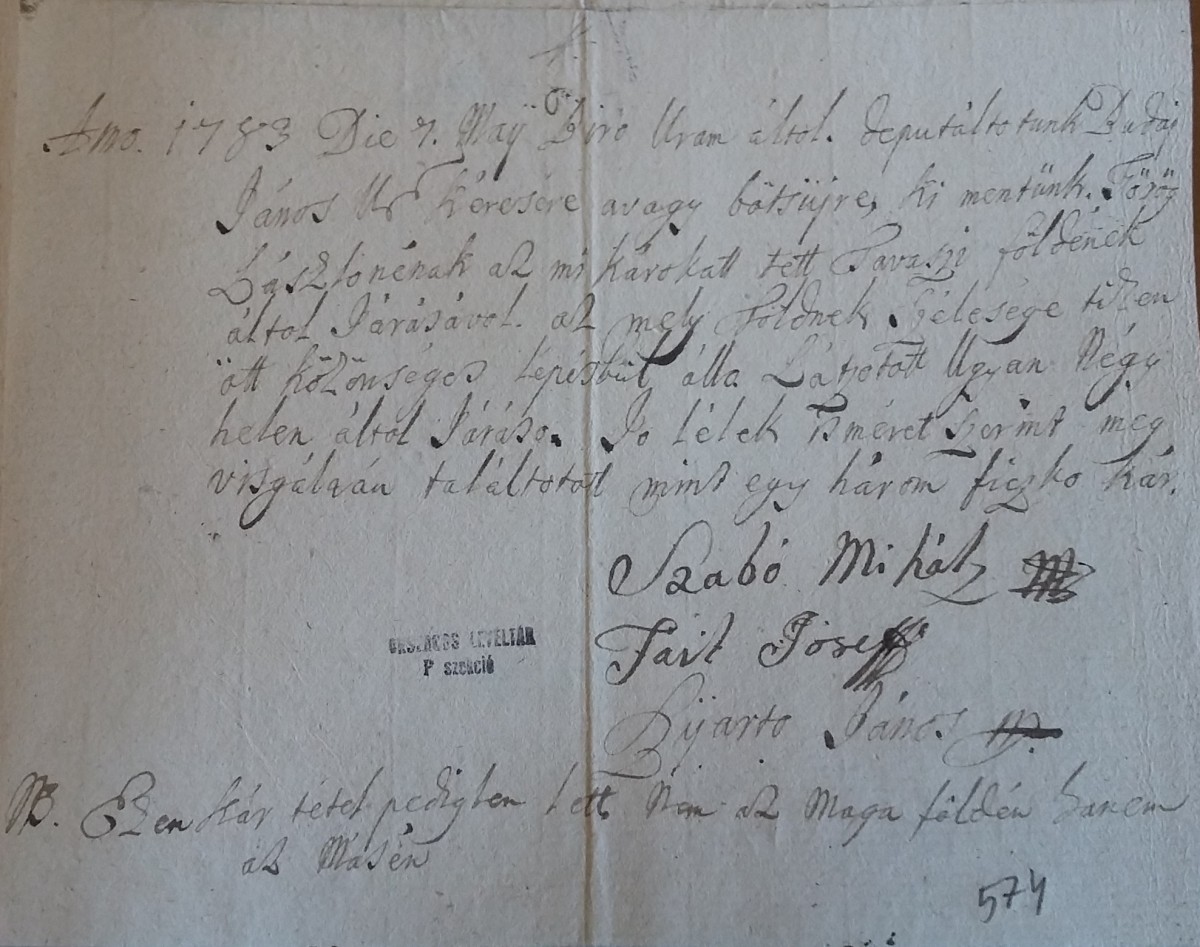 Anno. 1783 Die 7. Maÿ Biro Uram áltol. deputáltotunk Budaj
János Ur kérésére avagy bötsüjre, ki mentünk. Törög
Lászlonénak az mi károkatt tett Tavaszi földének
áltol Járásávol. az mely Földnek Szélesége tizen
ött közönséges lepésbül álla Látzotott Ugyan Négy
helen áltol Járáso. Jo lélek Isméret szerint meg
visgálván találtotot mint egy három ficzko kár.
Szabó Mihálÿ
Jósef
János
ORSZÁGOS LEVÉLTÁR
P szekció
NB. Ezen kár tétel pediglen lett Nem az Maga földén hanem
az Másén
574